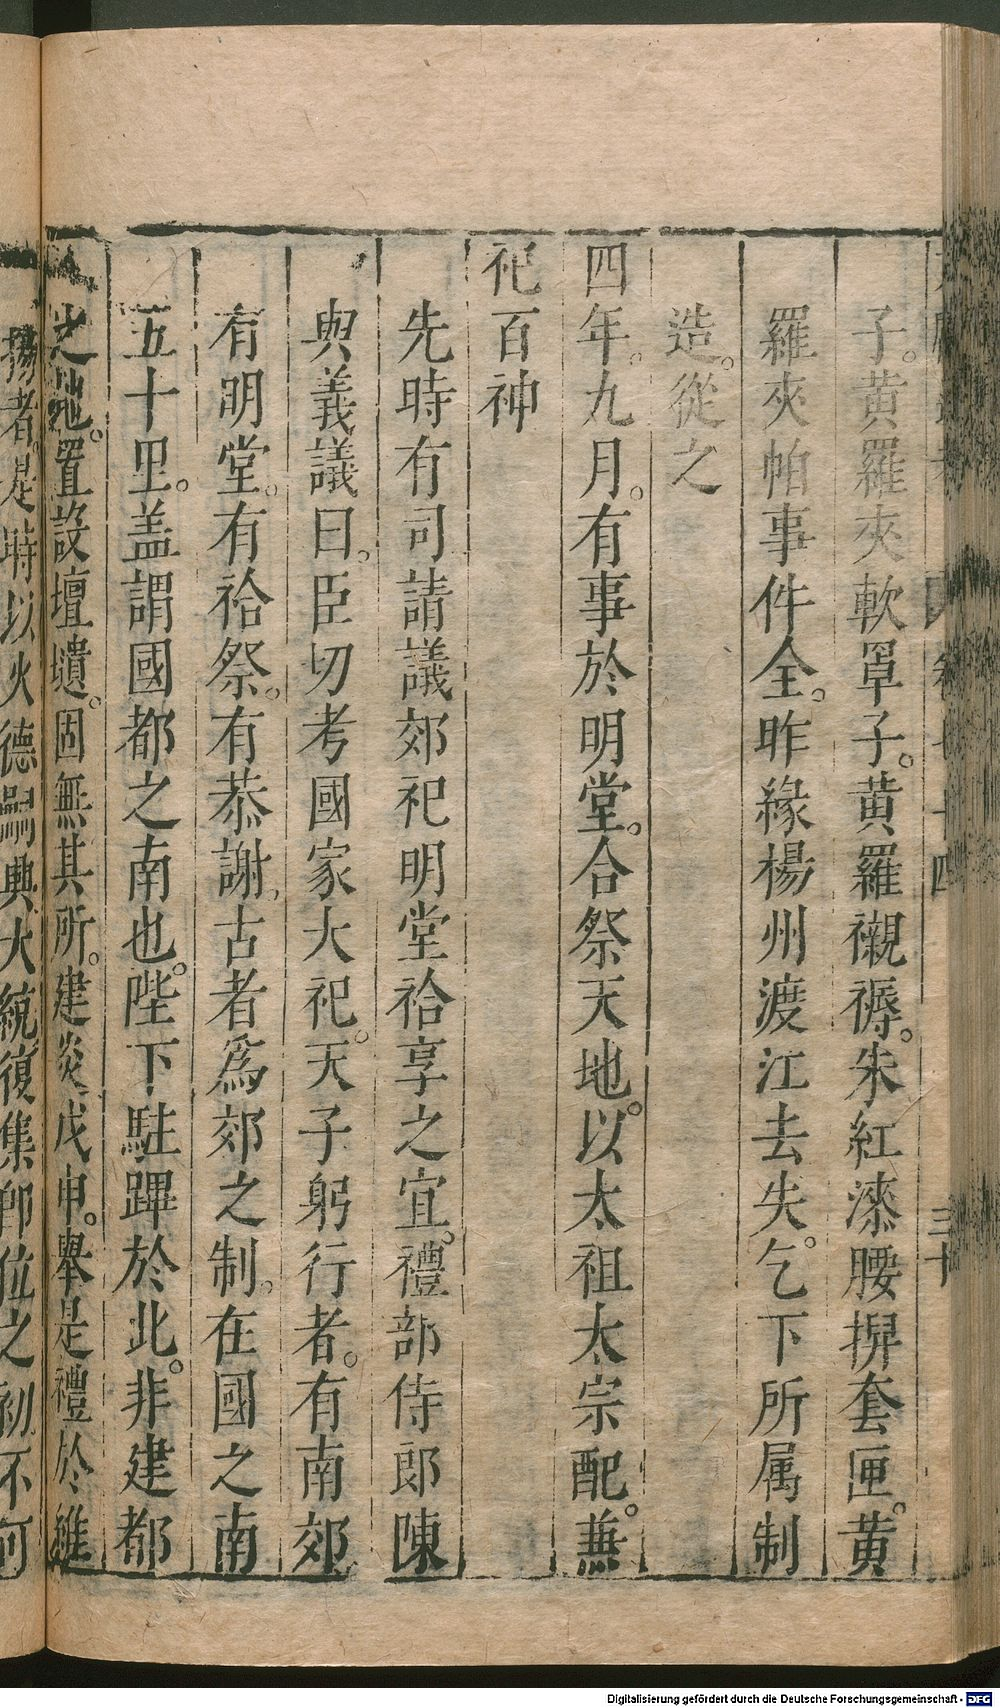 子。黄羅夾軟罩子。黄羅襯褥。朱紅漆腰捍套匣。黄
羅夾帕事件全。昨緣楊州渡江去失。乞下所属制
造。從之
四年。九月。有事於明堂。合祭天地。以太祖太宗配。兼
祀百神
先時有司請議郊祀明堂祫享之宜。禮部侍郎陳
與義議曰。臣切考國家大祀。天子躬行者。有南郊
有明堂。有祫祭。有恭謝。古者爲郊之制。在國之南
五十里。盖謂國都之南也。陛下駐蹕於此。非建都
之地。置設壇壝。固無其所。建炎戊申。舉是禮於維
揚者。是時以火德嗣興大統復集即位之初不可
Digitalisierung gefördert durch die Deutsche Forschungsgemeinschaft - DFG